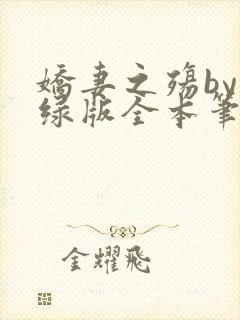 娇妻之殇by
绿版全本笔
金耀飛